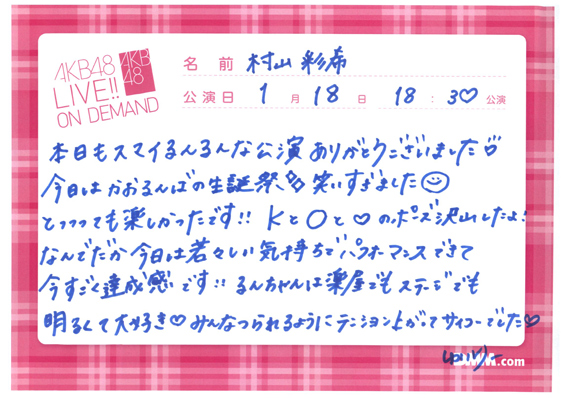 AKB48
LIVE!!
ON DEMAND
AKB
48
名前 村山彩希
公演日 1月18日 18:30公演
本日もスマイるんるんな公演ありがとうございました
今日はかおるんばの生誕祭 笑いすぎました
とっっっても楽しかったです!! Kと○と♡のポーズ沢山したよ!
なんでだか今日は若々しい気持ちでパフォーマンスできて
今すごく達成感です!! るんちゃんは楽屋でもステージでも
明るくて大好き♡ みんなつられるようにテンション上がってサイコーでした♡
ゆいりー
.com